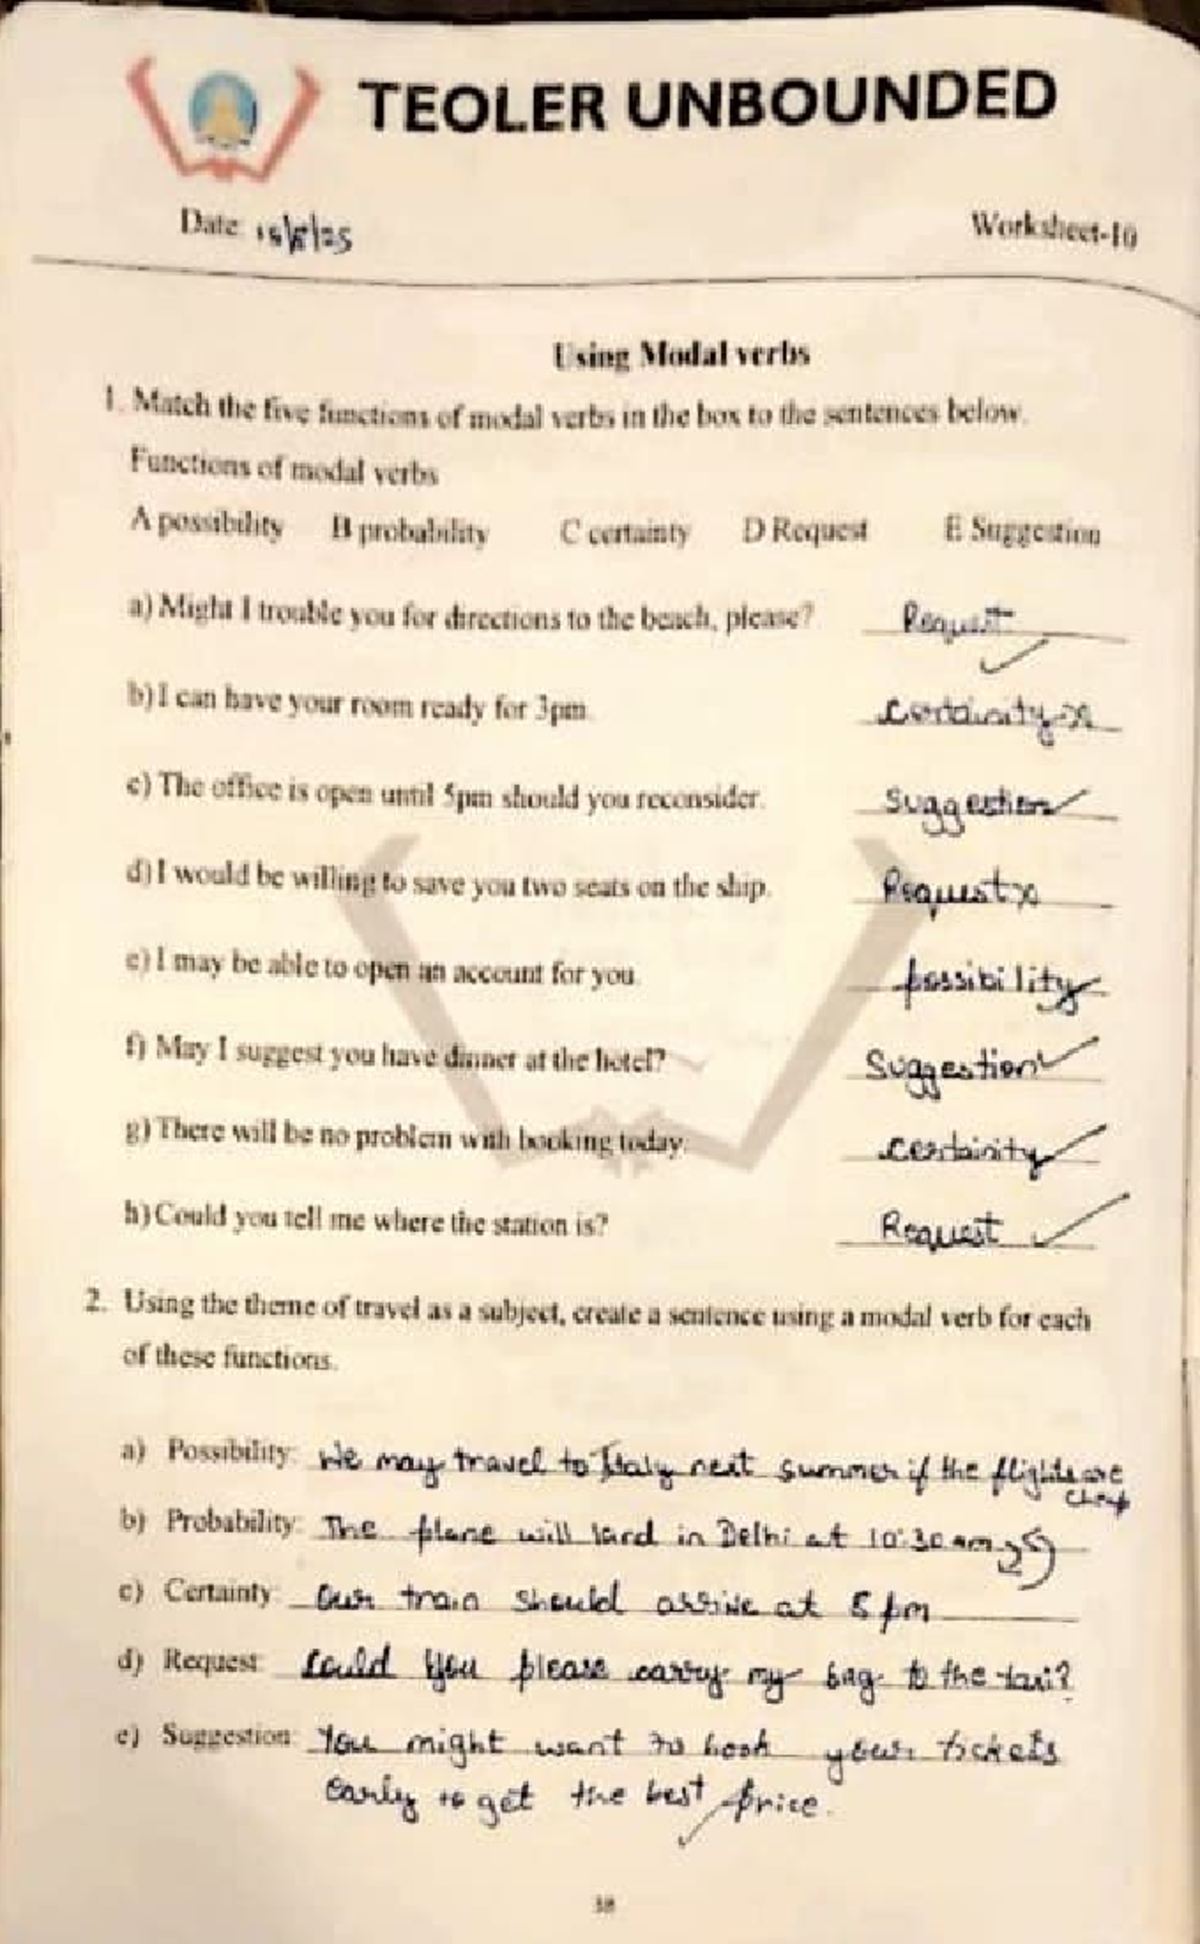 TEOLER UNBOUNDED
Date: 18/8/25 Worksheet-10
Using Modal verbs
1. Match the five functions of modal verbs in the box to the sentences below.
Functions of modal verbs
A possibility B probability C certainty D Request E Suggestion
a) Might I trouble you for directions to the beach, please? Request
b) I can have your room ready for 3pm. certainity
c) The office is open until 5pm should you reconsider. Suggestion
d) I would be willing to save you two seats on the ship. Request
e) I may be able to open an account for you. possibility
f) May I suggest you have dinner at the hotel? Suggestion
g) There will be no problem with booking today. certainity
h) Could you tell me where the station is? Request
2. Using the theme of travel as a subject, create a sentence using a modal verb for each
of these functions.
a) Possibility: We may travel to Italy next summer if the flights are
cheap
b) Probability: The plane will land in Delhi at 10:30 am
c) Certainty: Our train should arrive at 5 pm
d) Request: Could you please carry my bag to the taxi?
e) Suggestion: You might want to book your tickets
early to get the best price.
38